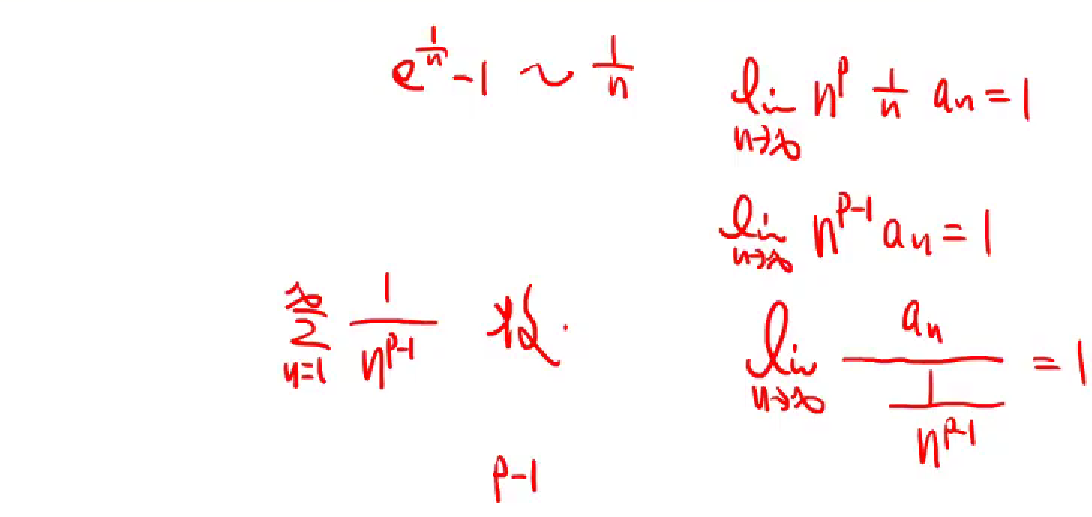 e^{\frac{1}{n}} - 1 \sim \frac{1}{n}
\lim_{n \to \infty} n^p \frac{1}{n} a_n = 1
\lim_{n \to \infty} n^{p-1} a_n = 1
\sum_{n=1}^{\infty} \frac{1}{n^{p-1}} 收.
\lim_{n \to \infty} \frac{a_n}{\frac{1}{n^{p-1}}} = 1
p-1